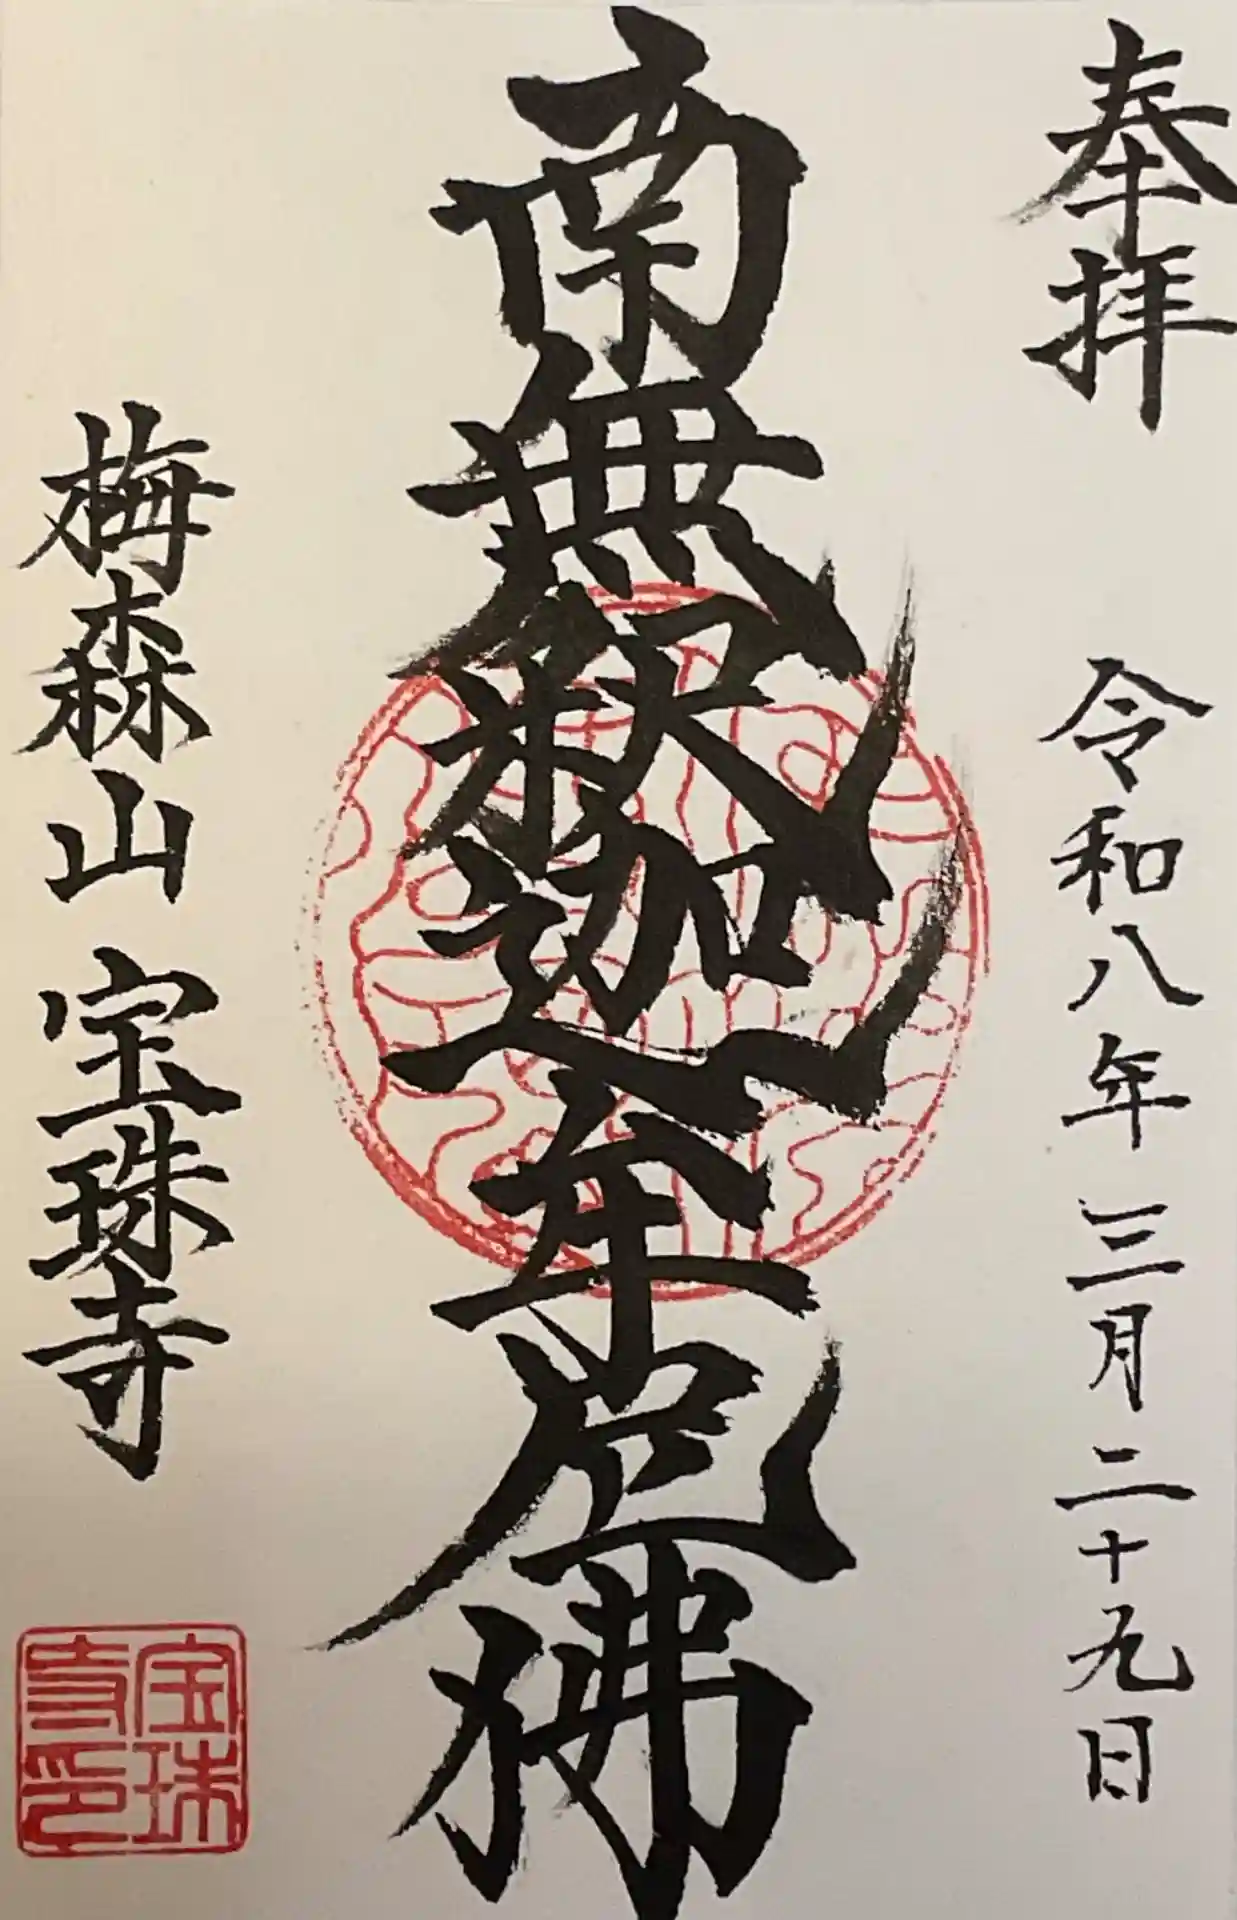 奉拝 令和八年三月二十九日
南無釈迦牟尼佛
梅森山 宝珠寺
宝珠
寺印